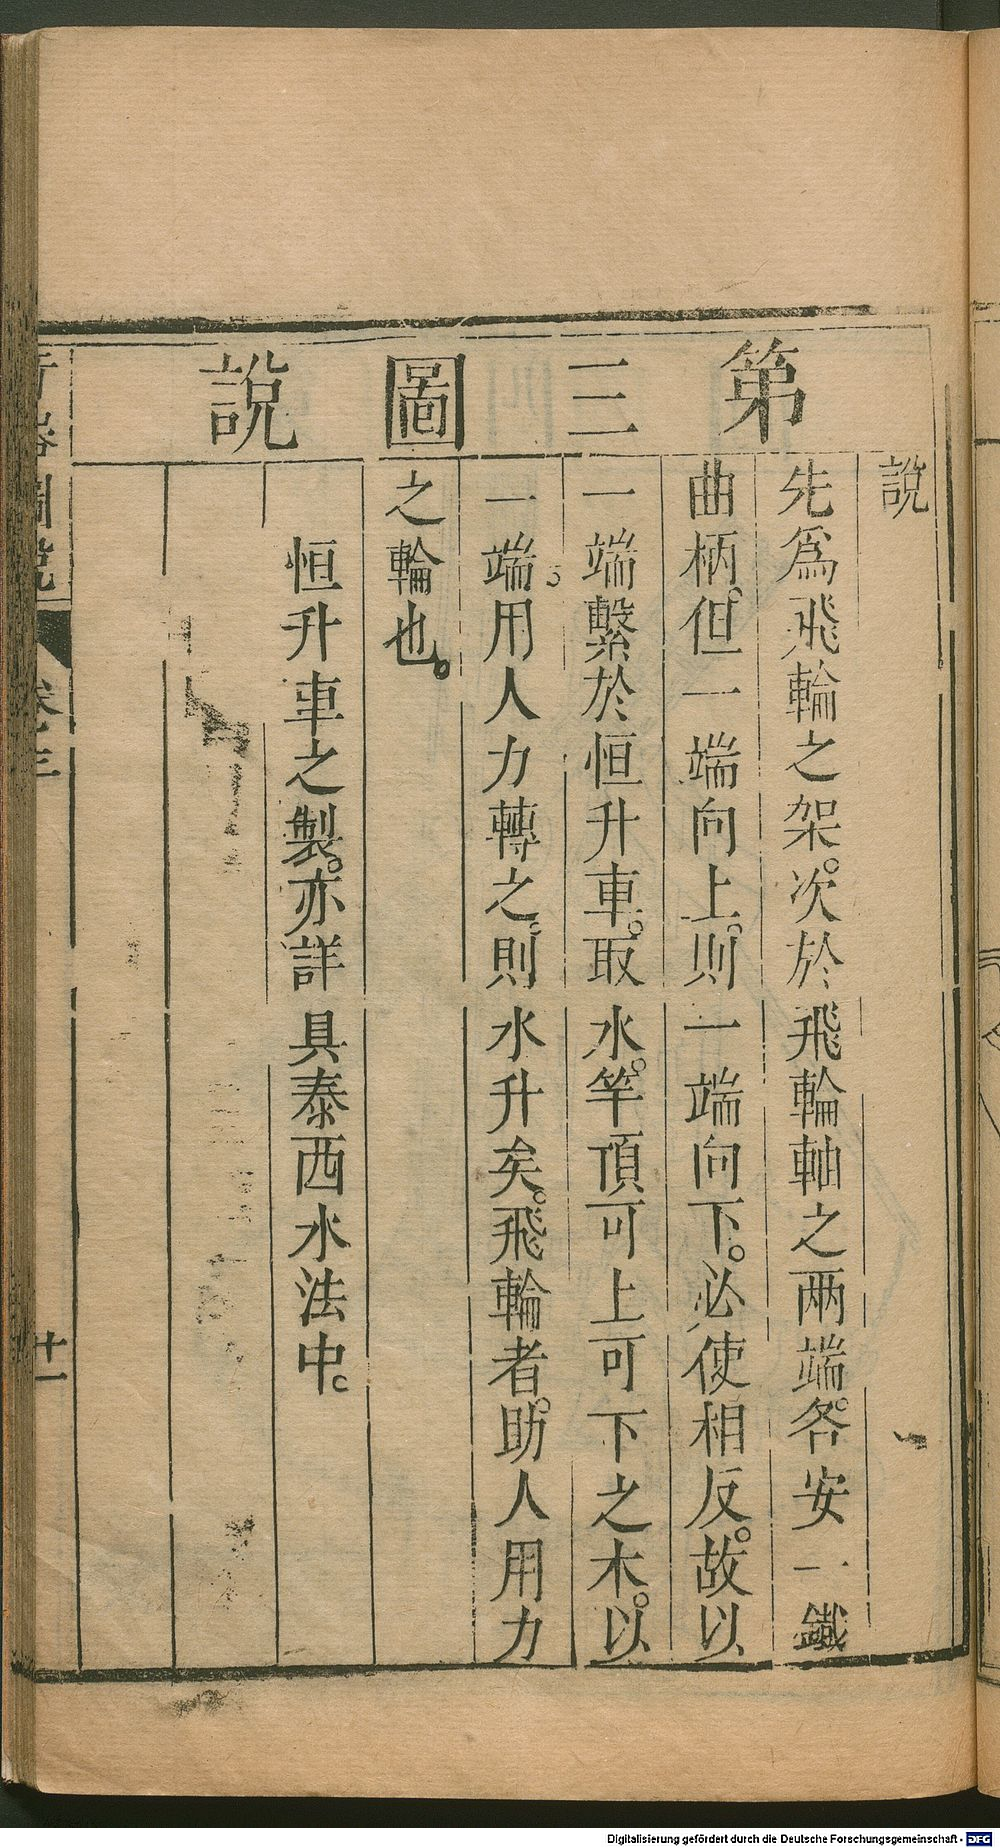 第三圖說
說
先爲飛輪之架。次於飛輪軸之兩端。各安一鐵
曲柄。但一端向上。則一端向下。必使相反。故以
一端繫於恒升車。取水。竿頂可上可下之木。以
一端。用人力轉之。則水升矣。飛輪者。助人用力
之輪也。
恒升車之製。亦詳具泰西水法中。
奇器圖說 卷三 十一
Digitalisierung gefördert durch die Deutsche Forschungsgemeinschaft - DFG